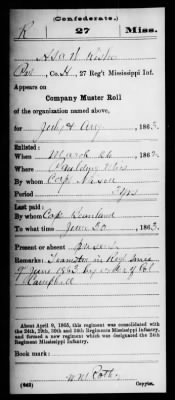 (Confederate.)
R 27 Miss.
Asa W.
Pvt, Co. H, 27 Reg't Mississippi Inf.
Appears on
Company Muster Roll
of the organization named above,
for July & Aug, 1863.
Enlisted:
When March 26, 186
Where Paulding Miss
By whom Capt
Period 3 yrs
Last paid:
By whom Capt
To what time June 30, 1863.
Present or absent Present
Remarks: Teamster in Reg't since
9 June 1863 by order of Col
Campbell
About April 9, 1865, this regiment was consolidated with
the 24th, 29th, 30th and 34th Regiments Mississippi Infantry,
and formed a new regiment which was designated the 24th
Regiment Mississippi Infantry.
Book mark:
(642) Copyist.